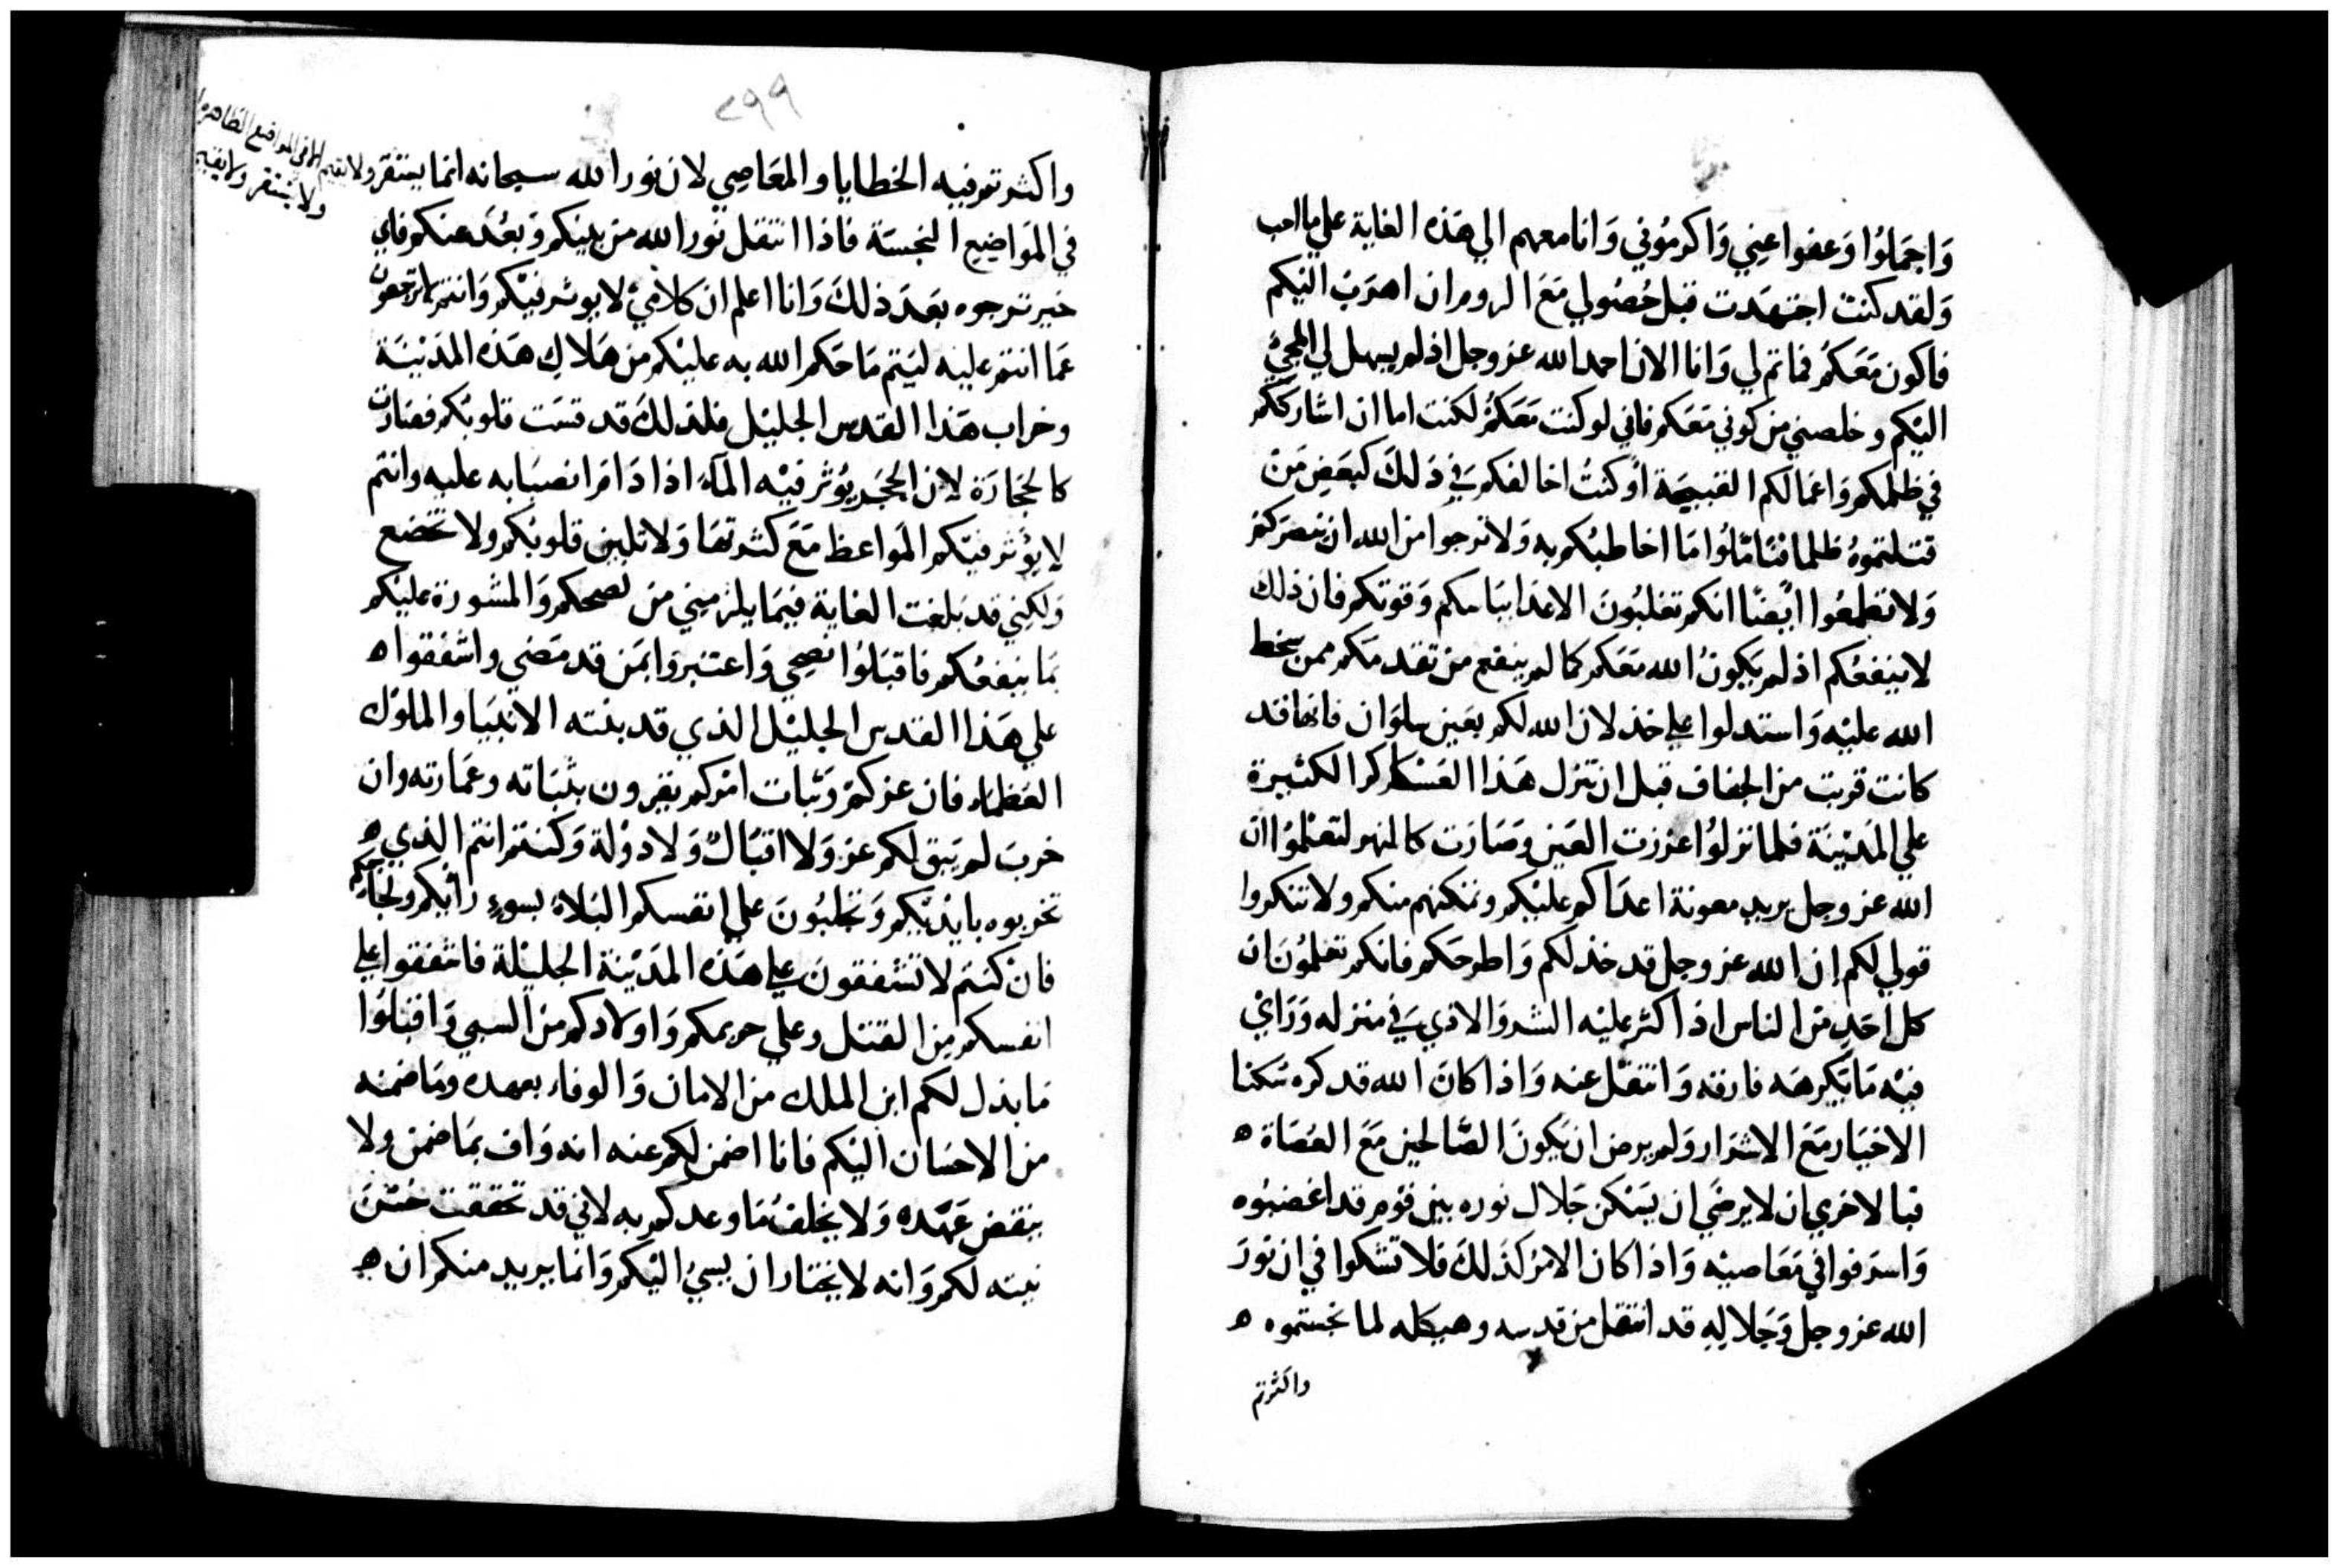 وَاجمَلوُا وَعفوا عني وَاكرمُوني وَانا معهم الي هَذه الغاية علي ما احب
وَلقد كنت اجتهَدت قبل حُصُولي مَعَ الروم ان اهرَبَ اليكم
فاكون مَعَكمُ فما تم لي وَانا الان احمد الله عز وجل اذ لم يسهل لي المجيُ
اليكم وخلصني من كوني مَعَكم فاني لو كنت مَعَكمُ لكنت اما ان اشارككم
في ظلمكم وَاعمَالكم القبيحَة اَو كنتُ اخالفكم في ذَلكَ كبعَضِ مَن
قتلتموهُ ظلما فتَامَّلوُا مَا اخاطبكم به وَلا ترجوا من الله ان ينصرَكم
وَلا تطمعُوا ايضًا انكم تغلبُونَ الاعدَا بباسكم وَقوتكم فان ذلك
لا ينفعُكم اذ لم يَكونُ الله مَعَكم كما لم ينفع من تقدمَكم ممن سخط
الله عليه وَاستدلوا علي خذلان الله لكم بعَين سلوَان فانها قد
كانت قربت من الجفاف قبل ان تنزل هَذا العَسَاكر الكثيرة
علي المَديْنَة فلما نزلوُا عزرت العَين وصَارَت كالنهر لتعلمُوا ان
الله عز وجل يريد معونة اعدَاكم عليْكم ونمكنهم منكم ولا تنكروا
قولي لكم إن الله عز وجل قد خذلكم وَاطرحَكم فانكم تعلمُونَ ان
كل احَدٍ مَن الناس اذا اكثر عليه الشر وَالاذي في منزله وَرَايَ
فيْه مَا يَكرهَه فارقه وَانتقل عنه وَاذا كانَ الله قد كره سكنا
الاخيَار مَعَ الاشرَار وَلم يرض ان يَكونَ الصَّالحين مَعَ العُصَاة ه
فبالاحري ان لا يرضَي ان يَسَكن جَلال نوره بين قوم قد اغضبُوه
وَاسرَفوا في مَعَاصيْه وَاذا كان الامرُ كذَلكَ فلا تشكوا في ان نورَ
الله عز وجل وَجَلالِهِ قد انتقل من قدسه وهيكله لما نجستموه ه
واكثرتم
٢٩٩
واكثرتم فيه الخطايا والمعَاصِي لان نور الله سبحانه انما يستقر ولا يقيم الا في المواضع الطاهرة
ولا يستقر ولا يقيم
في المَواضيع النجسَة فاذا انتقل نور الله من بينكم وَبَعُدَ عنكم فاي
خير ترجوه بعَدَ ذلكَ وَانا اعلم ان كلامي لا يوثر فيْكم وَانتم لا ترجعون
عَما انتم عليه ليَتم مَا حَكم الله به عليْكم من هَلاكِ هَذه المَديْنَة
وخراب هَذا القدس الجليْل فلذلكَ قد قسَت قلوبُكم فصَارت
كالحجَارَة لان الحجَر يُؤثر فيْه المآءُ اذا دَامَ انصبَابه عليه وانتم
لا يُؤثر فيْكم المَواعظ مَعَ كثرتهَا وَلا تلين قلوبكم ولا تخضع
وَلكِني قد بَلغت الغاية فيمَا يلزمني من نصحكم وَالمشورَة عليْكم
بمَا ينفعُكم فاقبَلوُا نصحِي وَاعتبروا بمَن قد مَضي واشفقوا ه
علي هَذا القدس الجليْل الذي قد بنته الانبيَا والملوُك
العَظمَاء فان عزكمُ وَثبات امرُكم يقرون بثبَاته وعمَارته وان
خربَ لم يَبق لكم عز وَلا اقبَالٌ وَلا دوْلة وَكنتم انتم الذي ه
تخربوه بايْديْكم وَتجلبُونَ علي انفسكم البَلاءُ بسوءِ رايكم ولجاجكم
فان كنتم لا تشفقون علي هَذه المَديْنة الجليْلة فاشفقوا علي
انفسكم مِن القتل وعلي حريمكم وَاولادكم من السبي وَاقبلوُا
مَا بذل لكم ابن الملك من الامان وَالوفاء بعهده ومَا ضمنه
من الاحسَان اليْكم فانا اضمن لكم عنه انه وَاف بمَا ضمن ولا
ينقض عَهْده وَلا يخلفُ مَا وعدكم به لاني قد تحققت حُسْنَ
نيته لكم وَانه لا يختار ان يسيُ اليْكم وَانما يريد منكم ان ه